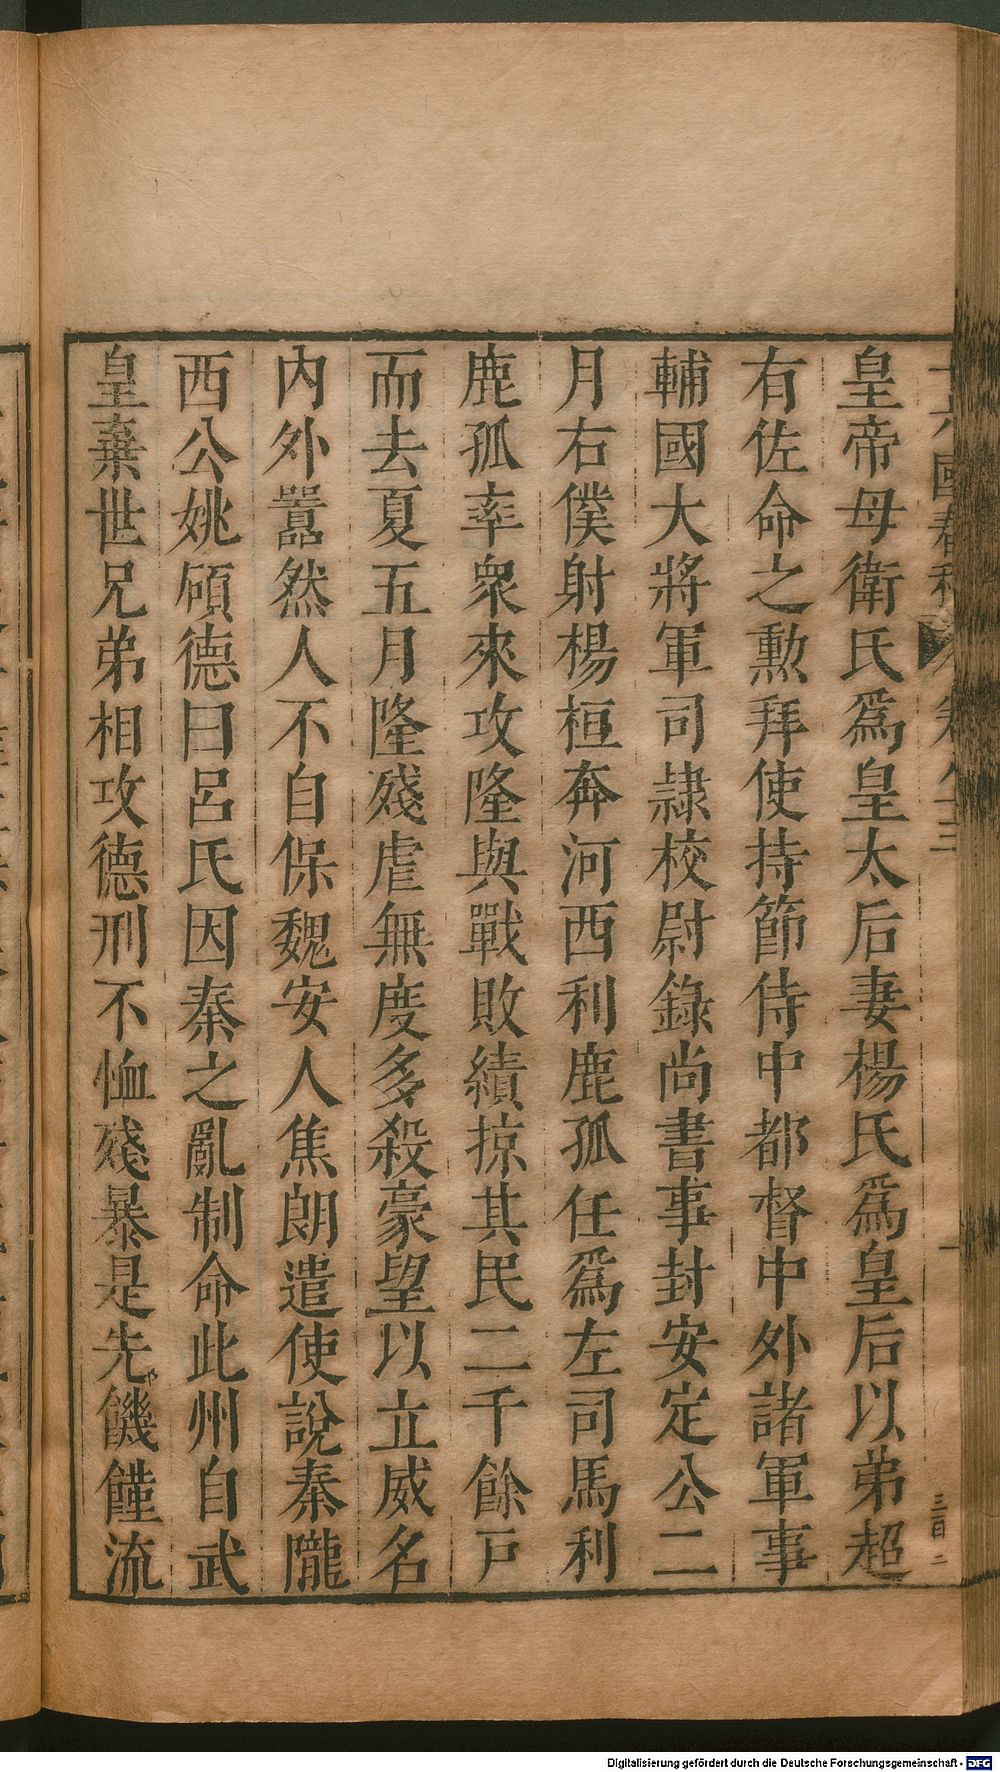 皇帝母衛氏爲皇太后妻楊氏爲皇后以弟超
有佐命之勲拜使持節侍中都督中外諸軍事
輔國大將軍司隷校尉錄尚書事封安定公二
月右僕射楊桓奔河西利鹿孤任爲左司馬利
鹿孤率衆來攻隆與戰敗績掠其民二千餘戸
而去夏五月隆殘虐無度多殺豪望以立威名
内外嚣然人不自保魏安人焦朗遣使說秦隴
西公姚碩德曰呂氏因秦之亂制命此州自武
皇棄世兄弟相攻德刑不恤殘暴是先饑饉流
Digitalisierung gefördert durch die Deutsche Forschungsgemeinschaft - DFG